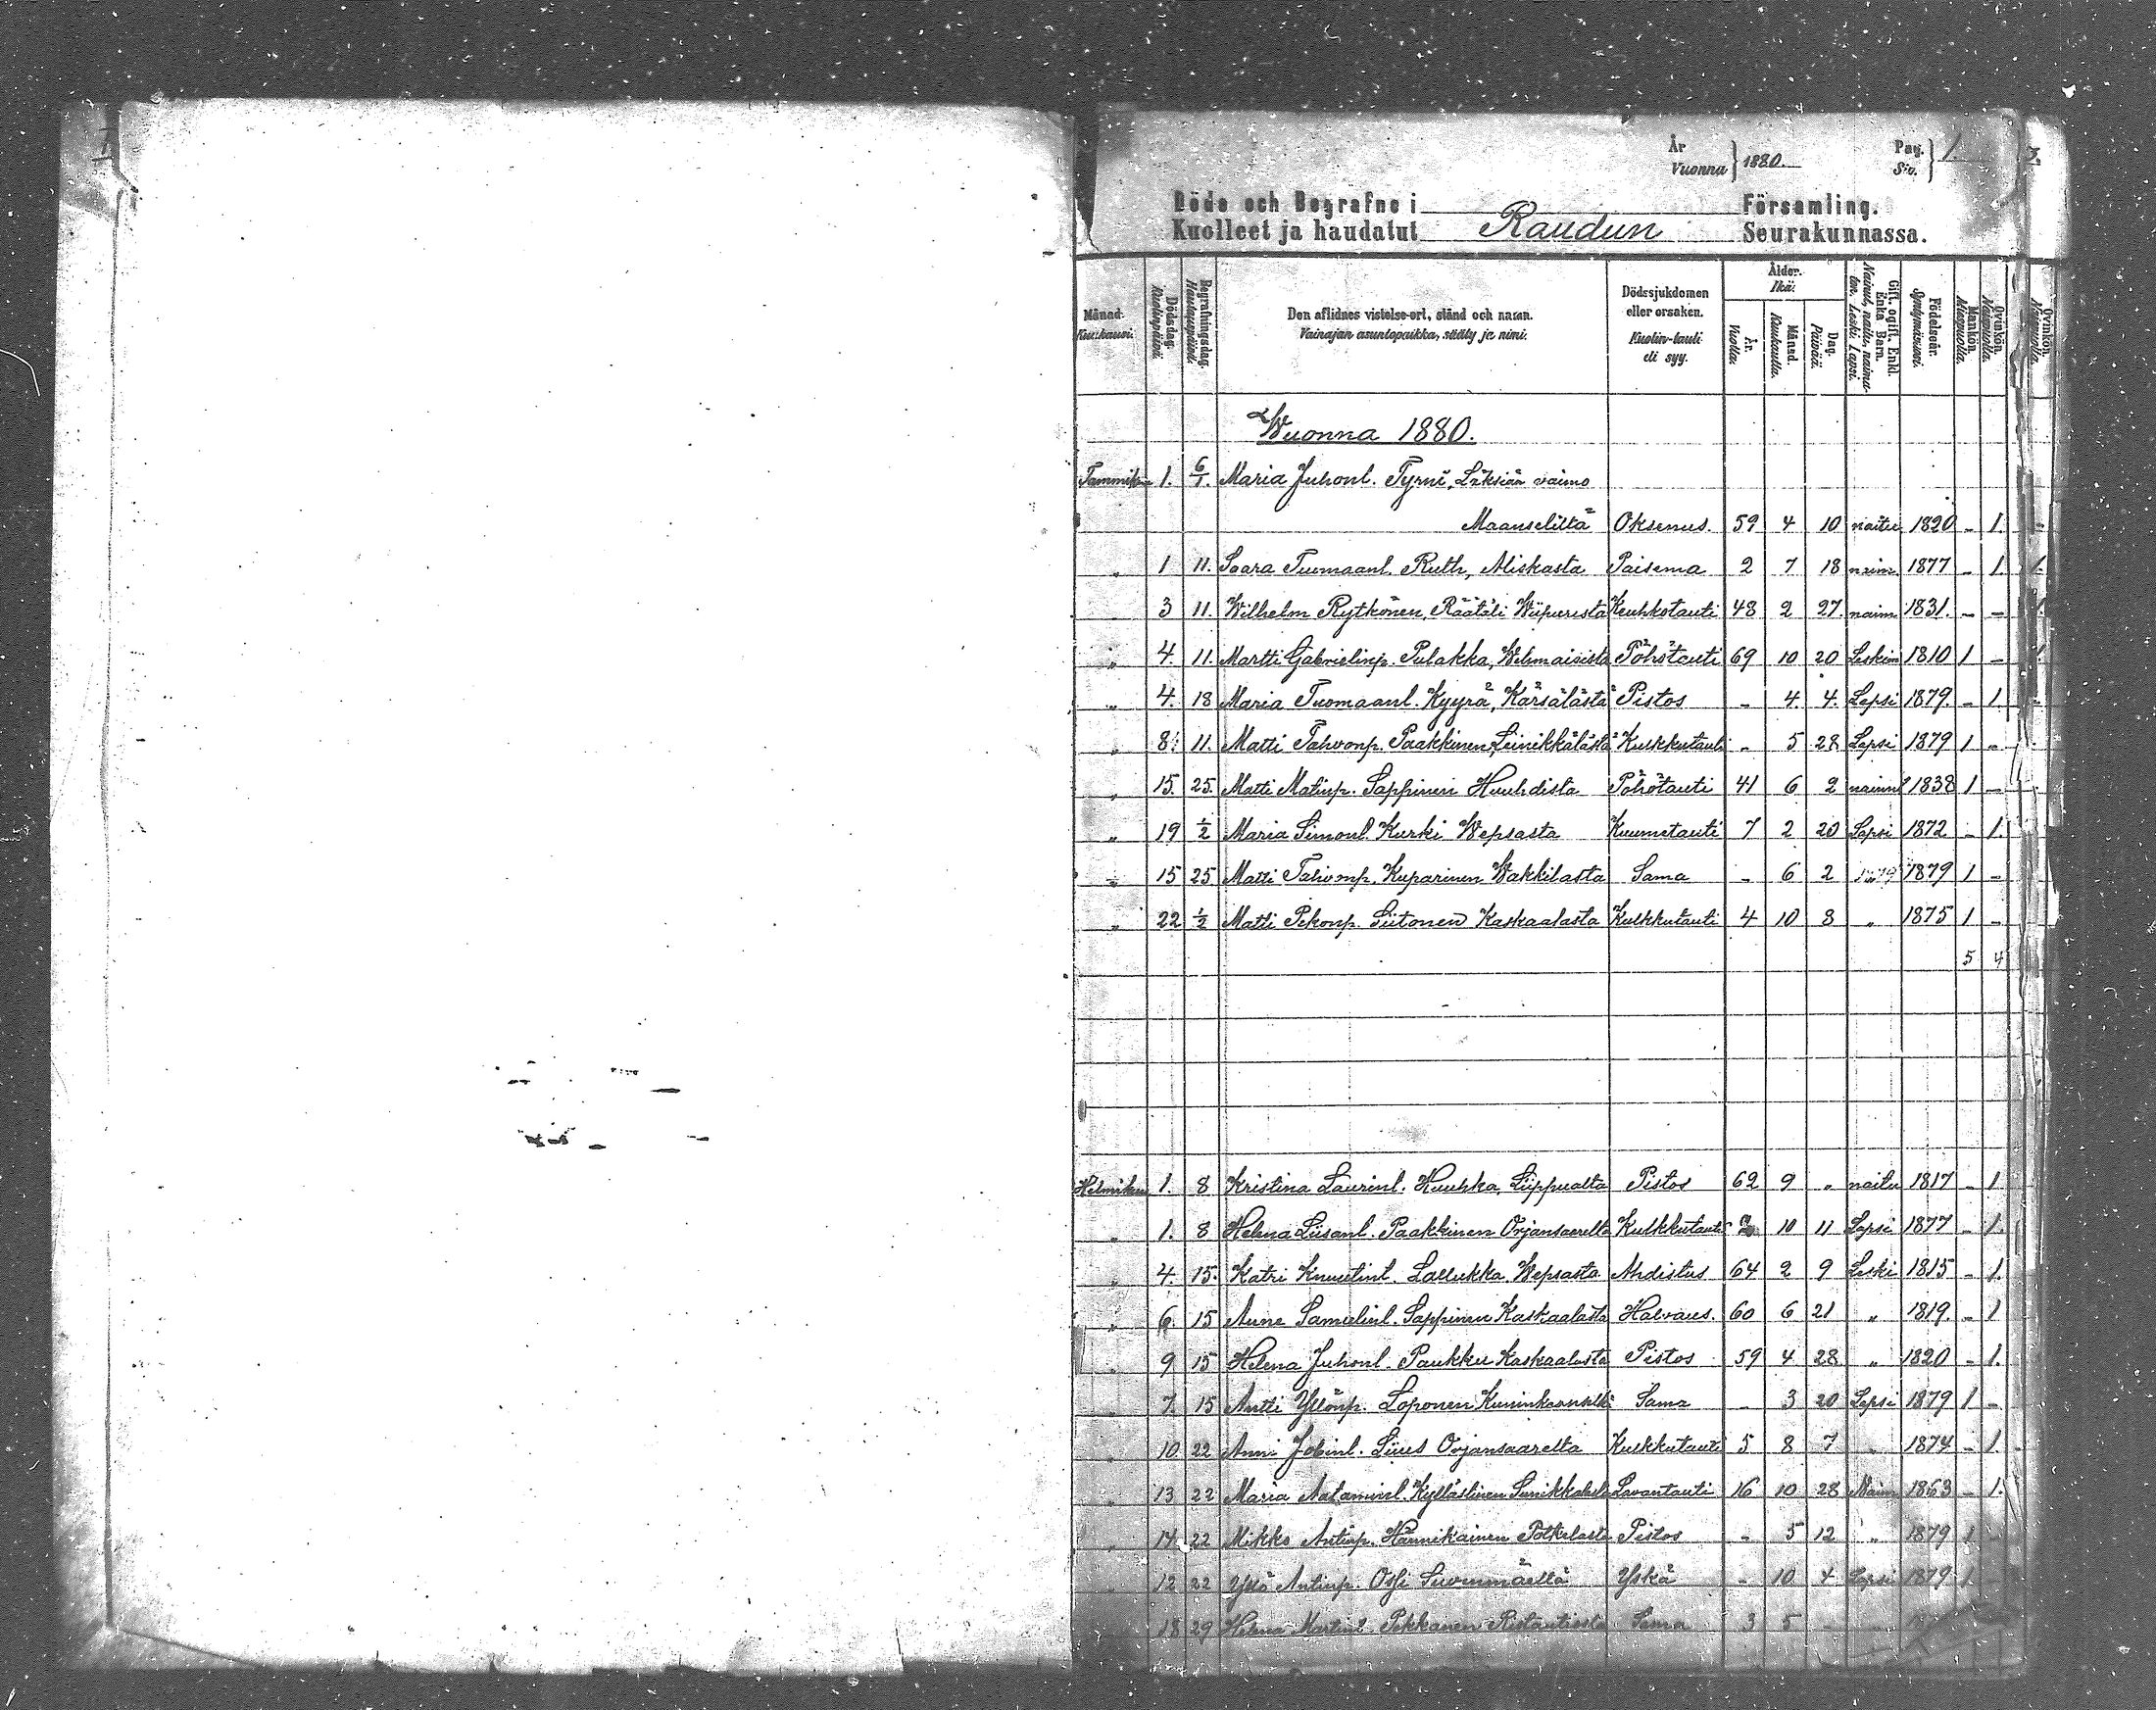 År
Vuonna } 1880. Pag. Siv. } 1
Döde och Begrafne i Församling.
Kuolleet ja haudatut Raudun Seurakunnassa.
Månad. Kuukausi. Dödsdag. Kuolinpäivä. Begrafningsdag. Hautauspäivä. Den aflidnes vistelse-ort, stånd och namn. Vainajan asuntopaikka, sääty ja nimi. Dödssjukdomen eller orsaken. Kuolin-tauti eli syy. Ålder. Ikä. År. Vuotta. Månad. Kuukautta. Dag. Päivää. Gift, ogift, Enkl. Enka Barn. Födelseår. Syntymävuosi. Mankön. Miespuolia. Qvinkön. Naispuolia.
Wuonna 1880.
Tammik. 1. 6/1. Maria Juhonl. Tyrni, vaimo
Maanselältä Oksenus. 59 4 10 naitu 1820 - 1.
" 1 11. Saara Tuomaanl. Ruth, Miskasta Paisema 2 7 18 1877 - 1.
" 3 11. Wilhelm Rytkönen, Räätäli Wiipurista Keuhkotauti 48 2 27 naim 1831. - -
" 4. 11. Martti Gabrielinp. Pulakka, Pöhötauti 69 10 20 Leskim 1810 1 -
" 4. 18 Maria Tuomaanl. Kyyrä, Kärsälästä Pistos - 4. 4. Lapsi 1879. - 1.
" 8. 11. Matti Tahvonp. Paakkinen, Leinikkälästä Kulkkutauti - 5 28 Lapsi 1879 1 -
" 15. 25. Matti Matinp. Sappinen Huuhdista Pöhötauti 41 6 2 1838 1 -
" 19 1/2 Maria Simonl. Kurki Wepsasta Kuumetauti 7 2 20 Lapsi 1872 - 1.
" 15 25 Matti Tahvonp. Kuparinen Wakkilasta Sama - 6 2 1879 1 -
" 22 1/2 Matti Pekonp. Siitonen Kaskaalasta Kulkkutauti 4 10 3 " 1875 1 -
5 4
Helmikuu 1. 8 Kristina Laurinl. Huuhka, Liippualta Pistos 62 9 " naitu 1817 - 1
" 1. 8 Helena Liisanl. Paakkinen Orjansaarelta Kulkkutauti 2 10 11 Lapsi 1877 - 1.
" 4. 15. Katri Knuutinl. Lallukka Wepsasta Ahdistus 64 2 9 Leski 1815 - 1.
" 6. 15 Anne Samulinl. Sappinen Kaskaalasta Halvaus. 60 6 21 " 1819. - 1
" 9 15 Helena Juhonl. Paukku Kaskaalasta Pistos 59 4 28 " 1820 - 1.
" 7. 15 Antti Yllönp. Loponen Sama - 3 20 Lapsi 1879 1 -
" 10. 22 Anni Jobinl. Liius Orjansaarelta Kulkkutauti 5 8 7 " 1874 - 1.
" 13 22 Maria Aataminl. Kylläslinen Lavantauti 16 10 28 Naim 1863 - 1.
" 14. 22 Mikko Antinp. Hännikäinen Pistos - 5 12 " 1879 1 -
" 12 22 Yllö Antinp. Ossi Suvenmäeltä Yskä - 10 4 Lapsi 1879 1
18 29 Helena Martinl. Pekkanen Sama 3 5 -